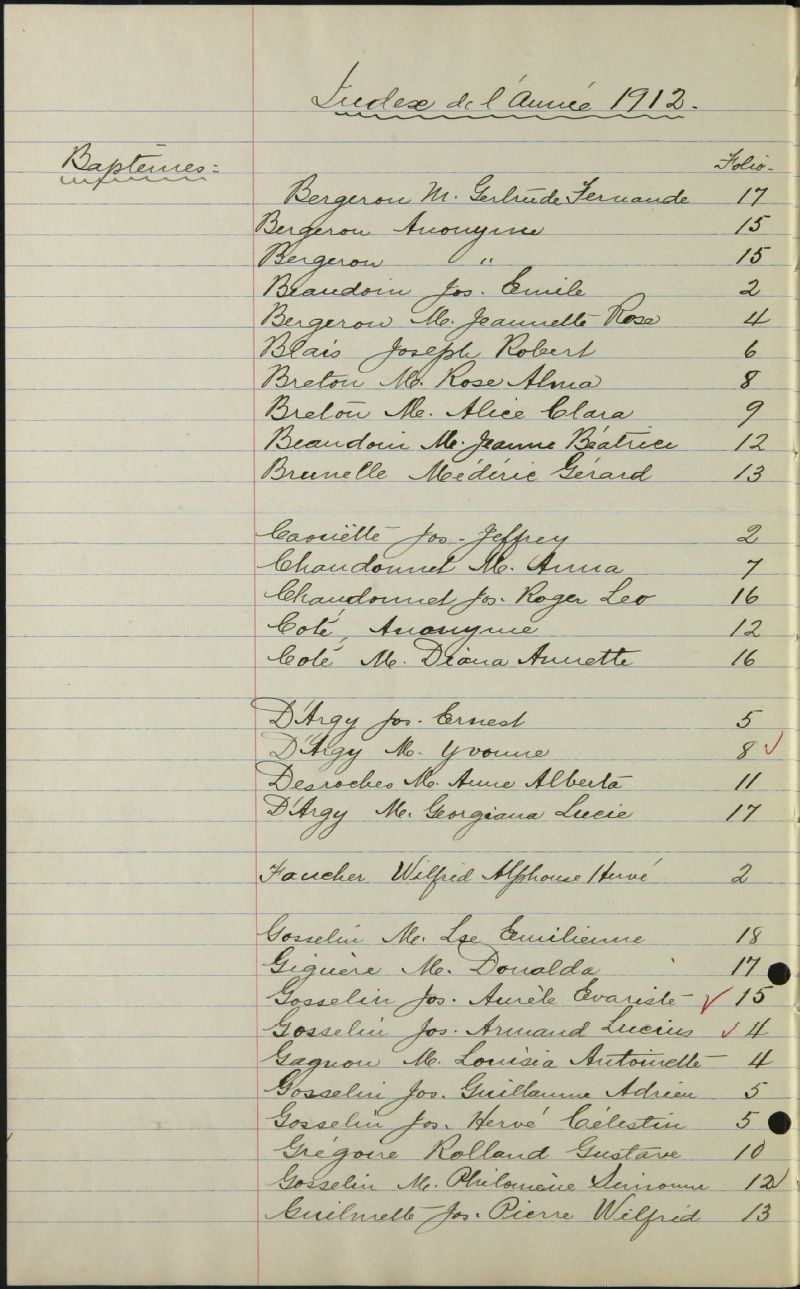 Index de l'Année 1912.
Baptêmes:
Folio.
Bergeron M. Gertrude Fernande 17
Bergeron Anonyme 15
Bergeron " 15
Beaudoin Jos. Emile 2
Bergeron M. Jeannette Rose 4
Blais Joseph Robert 6
Breton M. Rose Alma 8
Breton M. Alice Clara 9
Beaudoin M. Jeanne Béatrice 12
Brunelle Médéric Gérard 13
Caouëtte Jos. Jeffrey 2
Chandonnet M. Anna 7
Chandonnet Jos. Roger Leo 16
Coté, Anonyme 12
Coté M. Diana Annette 16
D'Argy Jos. Ernest 5
D'Argy M. Yvonne 8
Desroches M. Anne Alberta 11
D'Argy M. Georgiana Lucie 17
Faucher Wilfrid Alphonse Hervé 2
Gosselin M. Lse Emilienne 18
Giguère M. Donalda 17
Gosselin Jos. Aurèle Evariste 15
Gosselin Jos. Armand Lucius 4
Gagnon M. Louisia Antoinette 4
Gosselin Jos. Guillaume Adrien 5
Gosselin Jos. Hervé Célestin 5
Grégoire Rolland Gustave 10
Gosselin M. Philomène Simonne 12
Guilmette Jos. Pierre Wilfrid 13